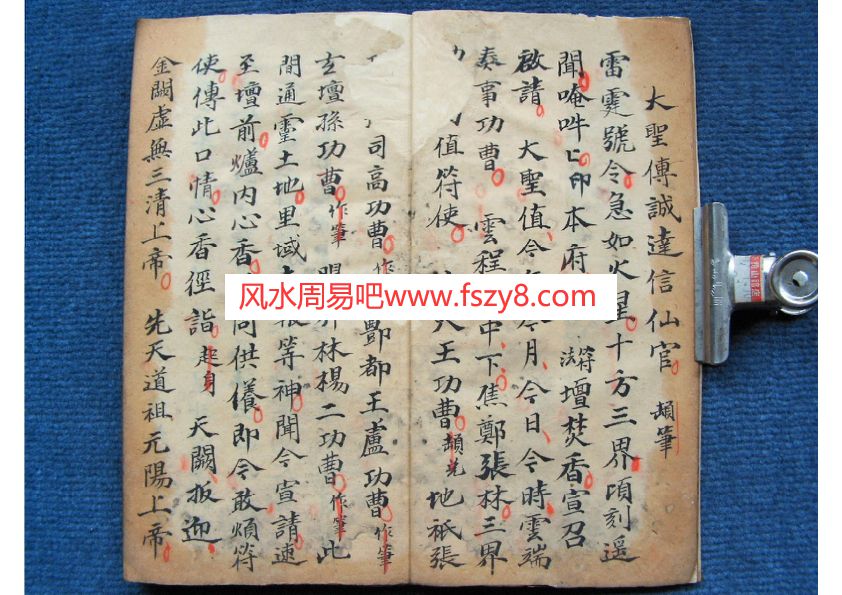 大聖傳誠達信仙官 頼筆
雷霆號令急如火星十方三界頃刻遥
聞唵吽 印本府 符法壇焚香宣召
啟請 大聖值今 今月今日今時雲端
奏事功曹 雲程 中下焦鄭張林三界
值符使 王功曹 地祇張
司高功曹 作 酆都王盧功曹作筆
玄壇孫功曹作筆 林楊二功曹作筆 此
間通靈土地里域 等神聞今宣請速
至壇前爐內心香 同供儀即令敢煩符
使傳此口情心香徑詣 起身 天闕扳迎
金闕虛無三清上帝 先天道祖元陽上帝
风水周易吧www.fszy8.com